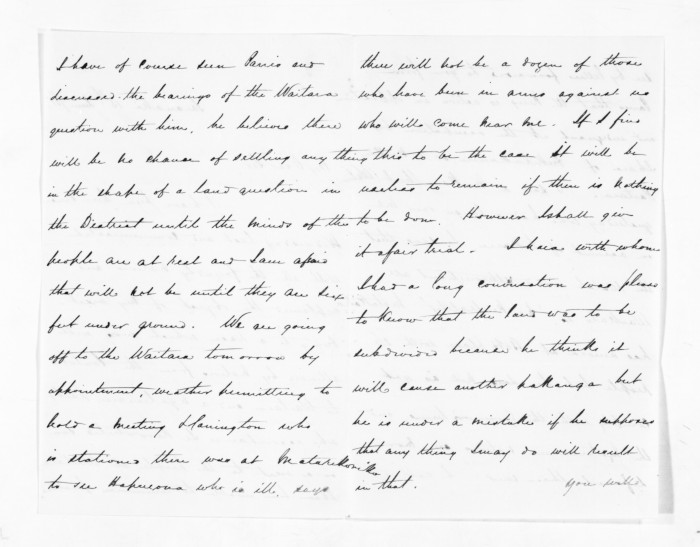 I have of course seen Parris and
discussed the bearings of the Waitara
question with him, he believes there
will be no chance of settling any thing
in the shape of a land question in
the District until the minds of the
people are at rest and I am afraid
that will not be until they are six
feet under ground. We are going
off to the Waitara tomorrow by
appointment, weather permitting to
hold a meeting Hanington who
is stationed there was at Matarikoriko
to see Hapurona who is ill, says
there will not be a dozen of those
who have been in arms against us
who will come near me. If I find
this to be the case it will be
useless to remain if there is nothing
to be done. However I shall give
it a fair trial. with whom
I had a long conversation was pleased
to know that the land was to be
subdivided because he thinks it
will cause another pakanga but
he is under a mistake if he supposes
that any thing I may do will result
in that.
you will